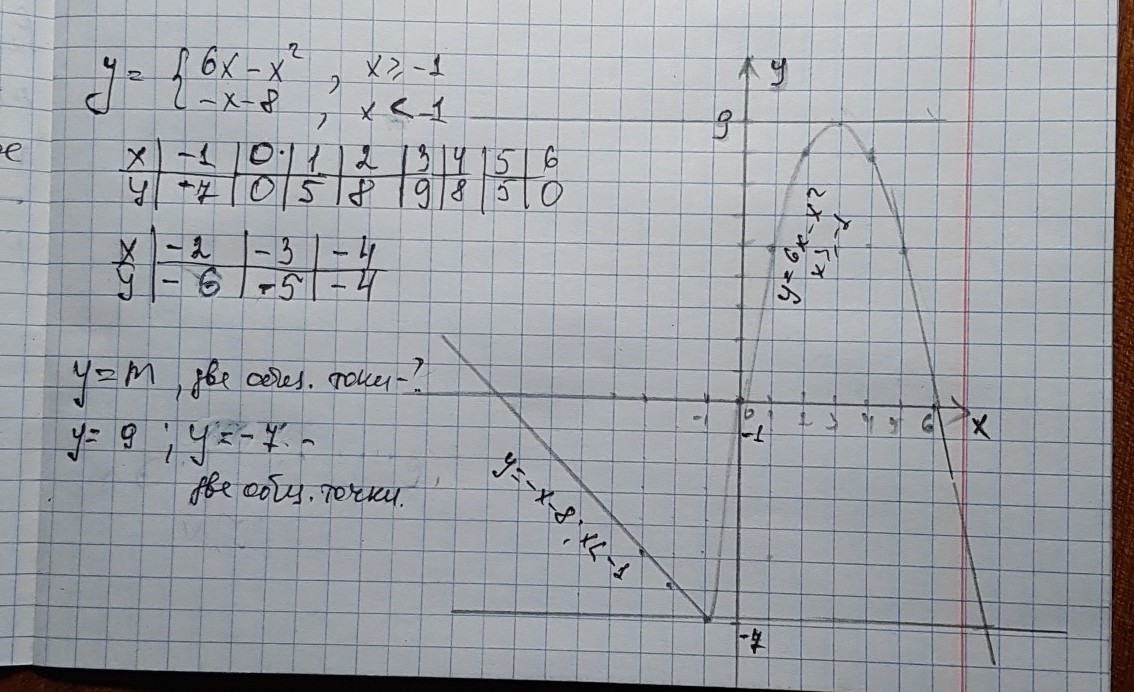 y = { 6x - x² , x ≥ -1
-x - 8 , x < -1
x | -1 | 0 | 1 | 2 | 3 | 4 | 5 | 6
y | -7 | 0 | 5 | 8 | 9 | 8 | 5 | 0
x | -2 | -3 | -4
y | -6 | -5 | -4
y = m , две общ. точки - ?
y = 9 ; y = -7 -
две общ. точки.
y
9
y = 6x - x²
x ≥ -1
-1 0 1 2 3 4 5 6 x
-1
y = -x - 8; x < -1
-7